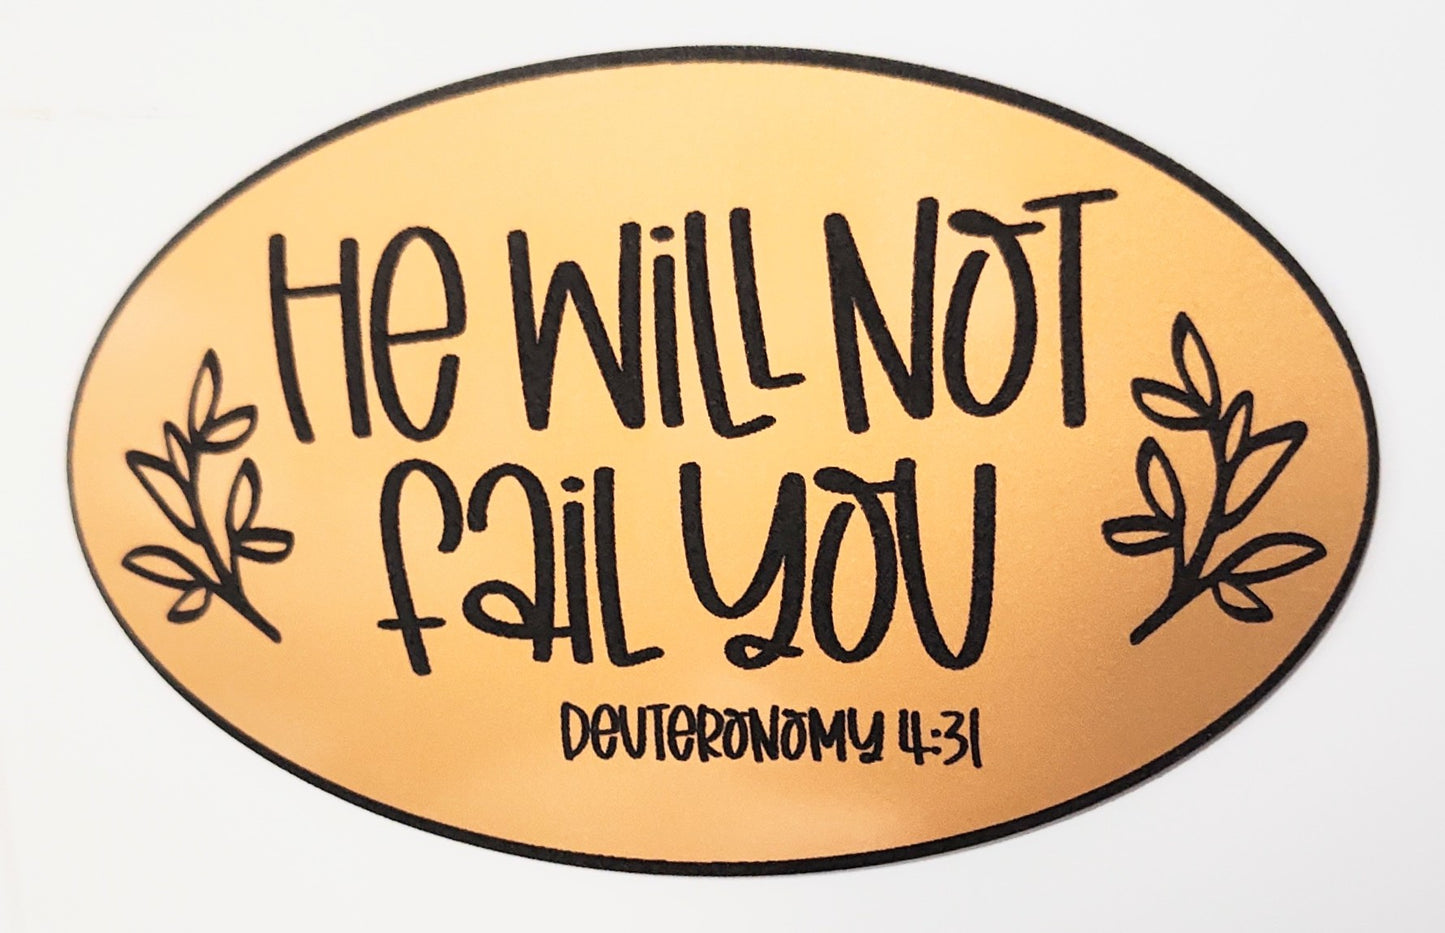 He Will Not
Fail You
Deuteronomy 4:31